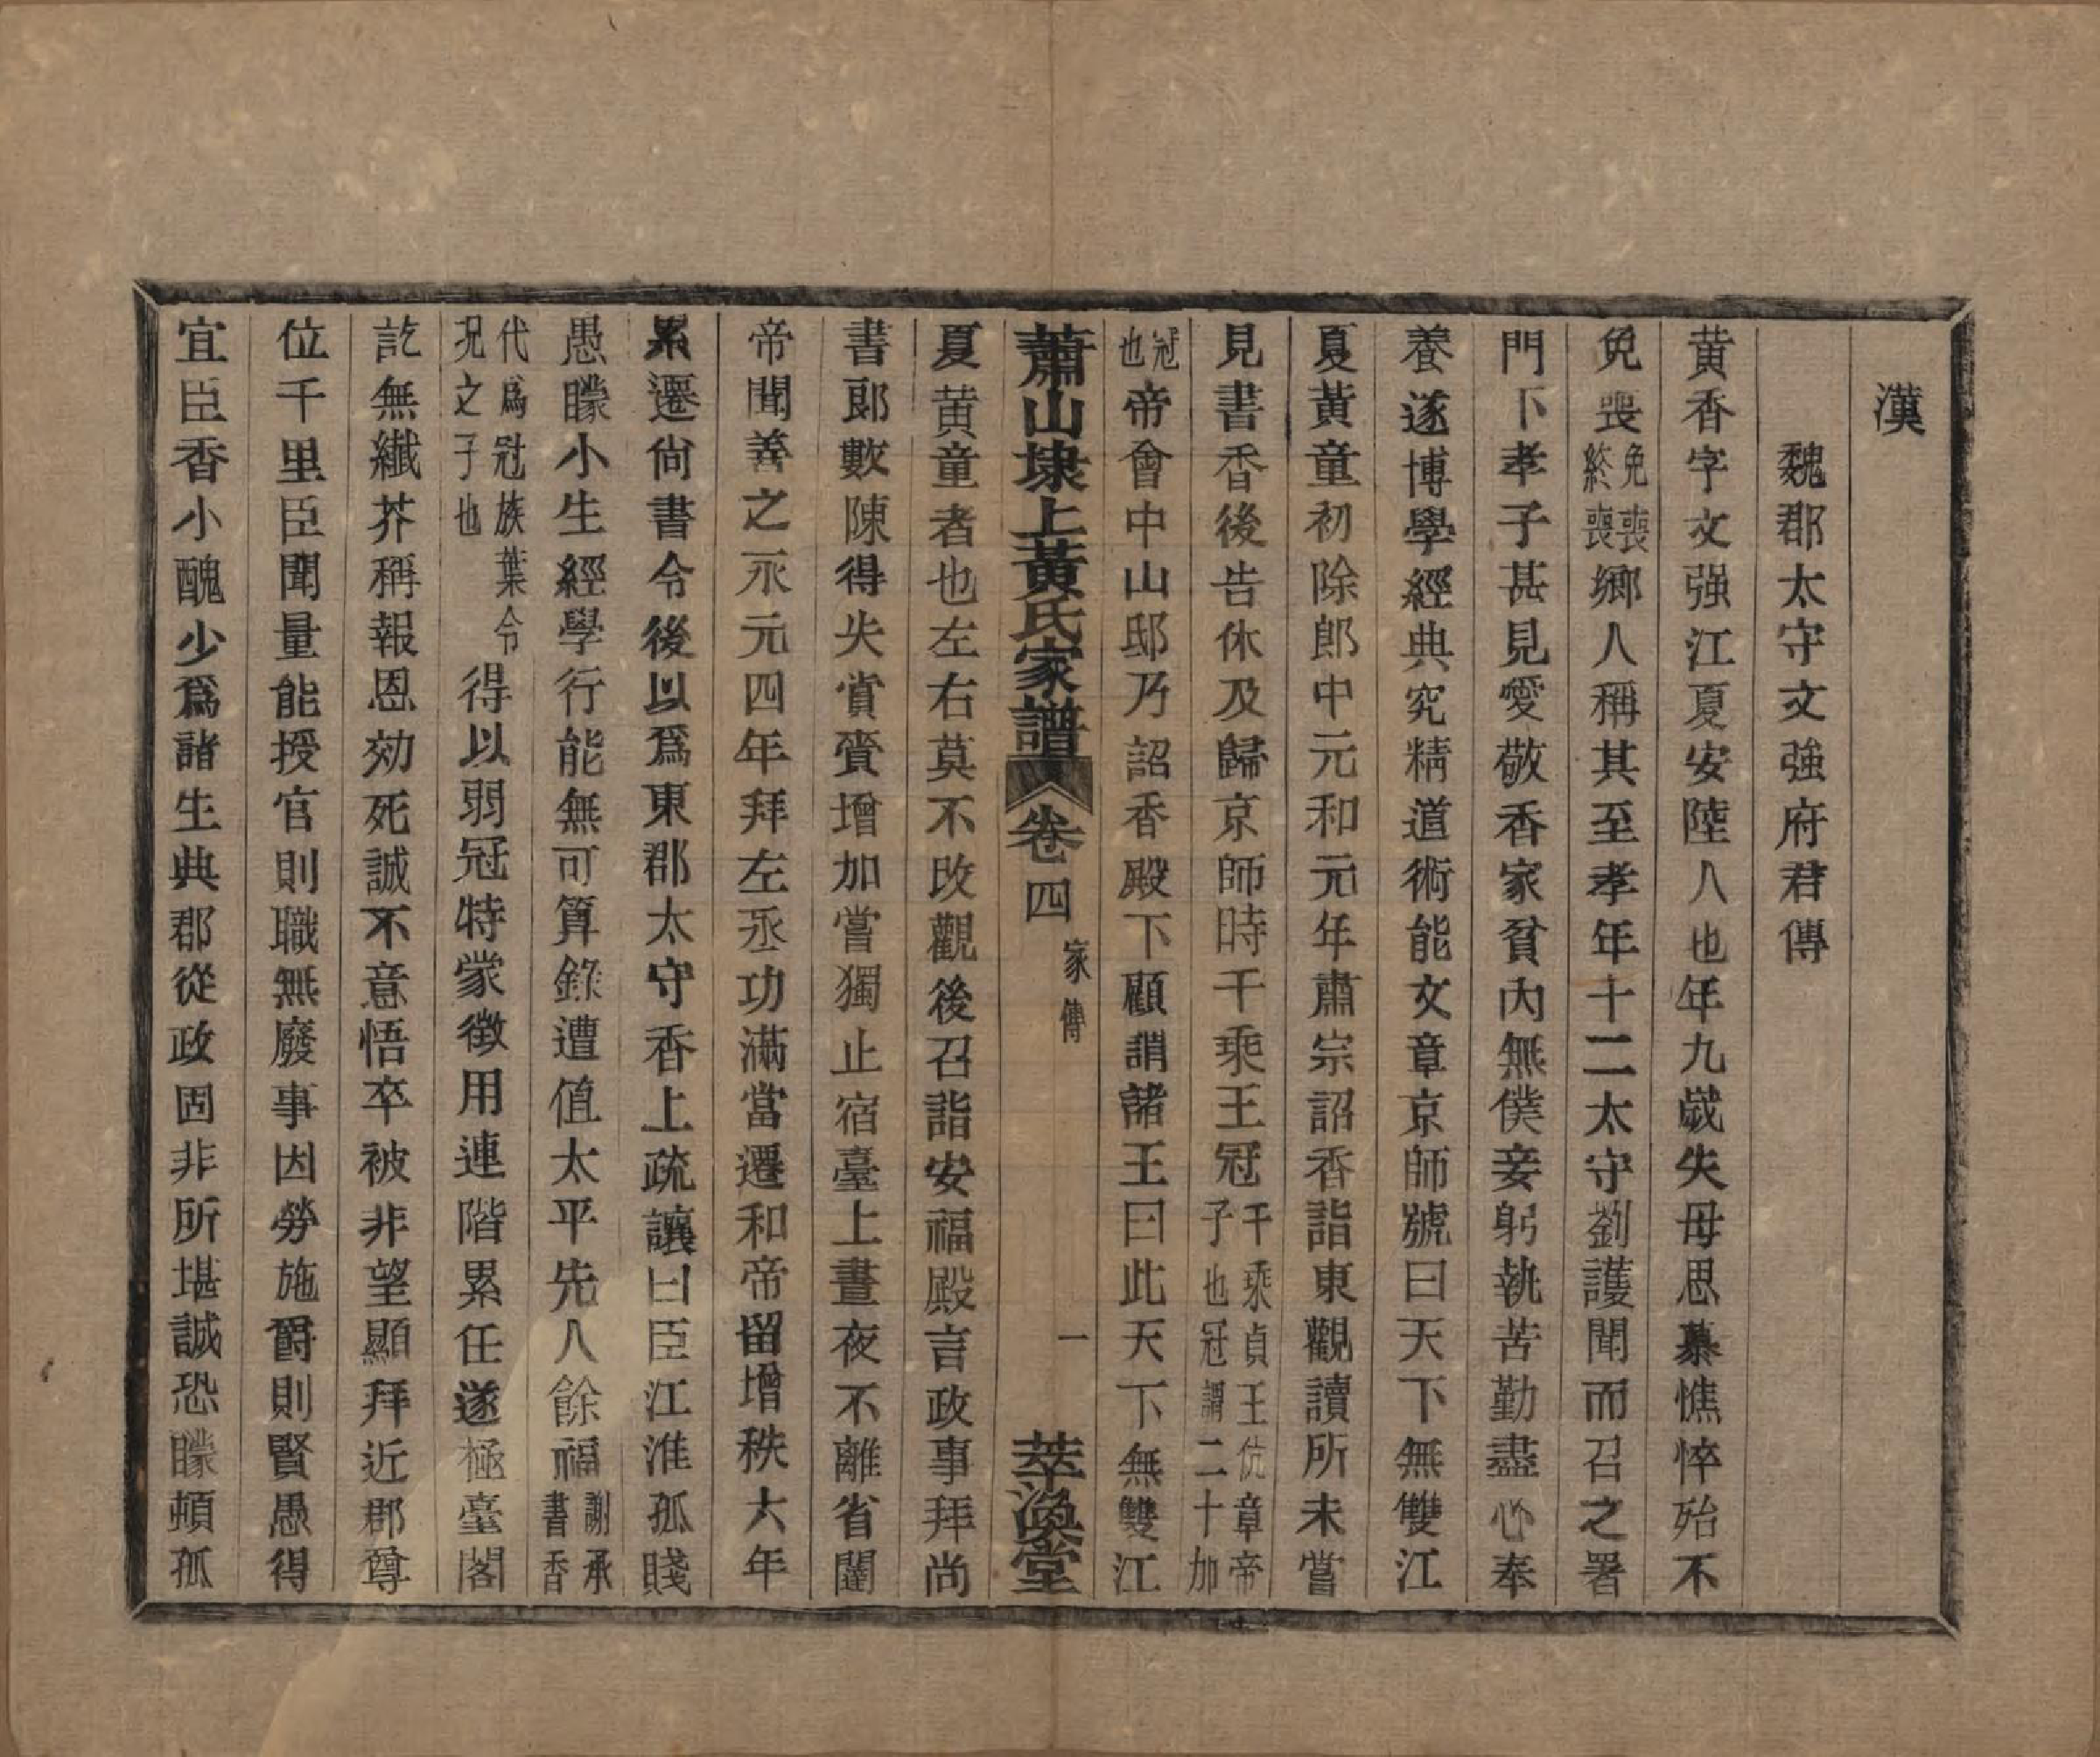 漢
魏郡太守文強府君傳
黄香字文强江夏安陸人也年九歲失母思慕憔悴殆不
免喪免喪終喪鄉人稱其至孝年十二太守劉護聞而召之署
門下孝子甚見愛敬香家貧內無僕妾躬執苦勤盡心奉
養遂博學經典究精道術能文章京師號曰天下無雙江
夏黃童初除郎中元和元年肅宗詔香詣東觀讀所未嘗
見書香後告休及歸京師時千乘王冠千乘貞王伉章帝子也冠謂二十加
冠也帝會中山邸乃詔香殿下顧謂諸王曰此天下無雙江
蕭山埭上黃氏家譜 卷四 家傳 一 萃渙堂
夏黄童者也左右莫不改觀後召詣安福殿言政事拜尚
書郎數陳得失賞賚增加嘗獨止宿臺上晝夜不離省闥
帝聞善之永元四年拜左丞功滿當遷和帝留增秩六年
累遷尚書令後以爲東郡太守香上疏讓曰臣江淮孤賤
愚矇小生經學行能無可算錄遭值太平先人餘福謝承書香
代爲冠族葉令況之子也得以弱冠特蒙徵用連階累任遂極臺閣
訖無纖芥稱報恩効死誠不意悟卒被非望顯拜近郡尊
位千里臣聞量能授官則職無廢事因勞施爵則賢愚得
宜臣香小醜少爲諸生典郡從政固非所堪誠恐矇頓孤